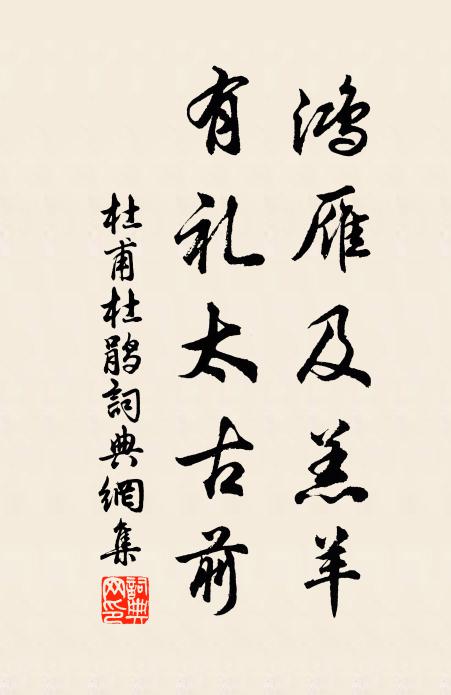 鸿雁及羔羊
有礼太古前
杜甫杜鹃詞典網集
詞典网印